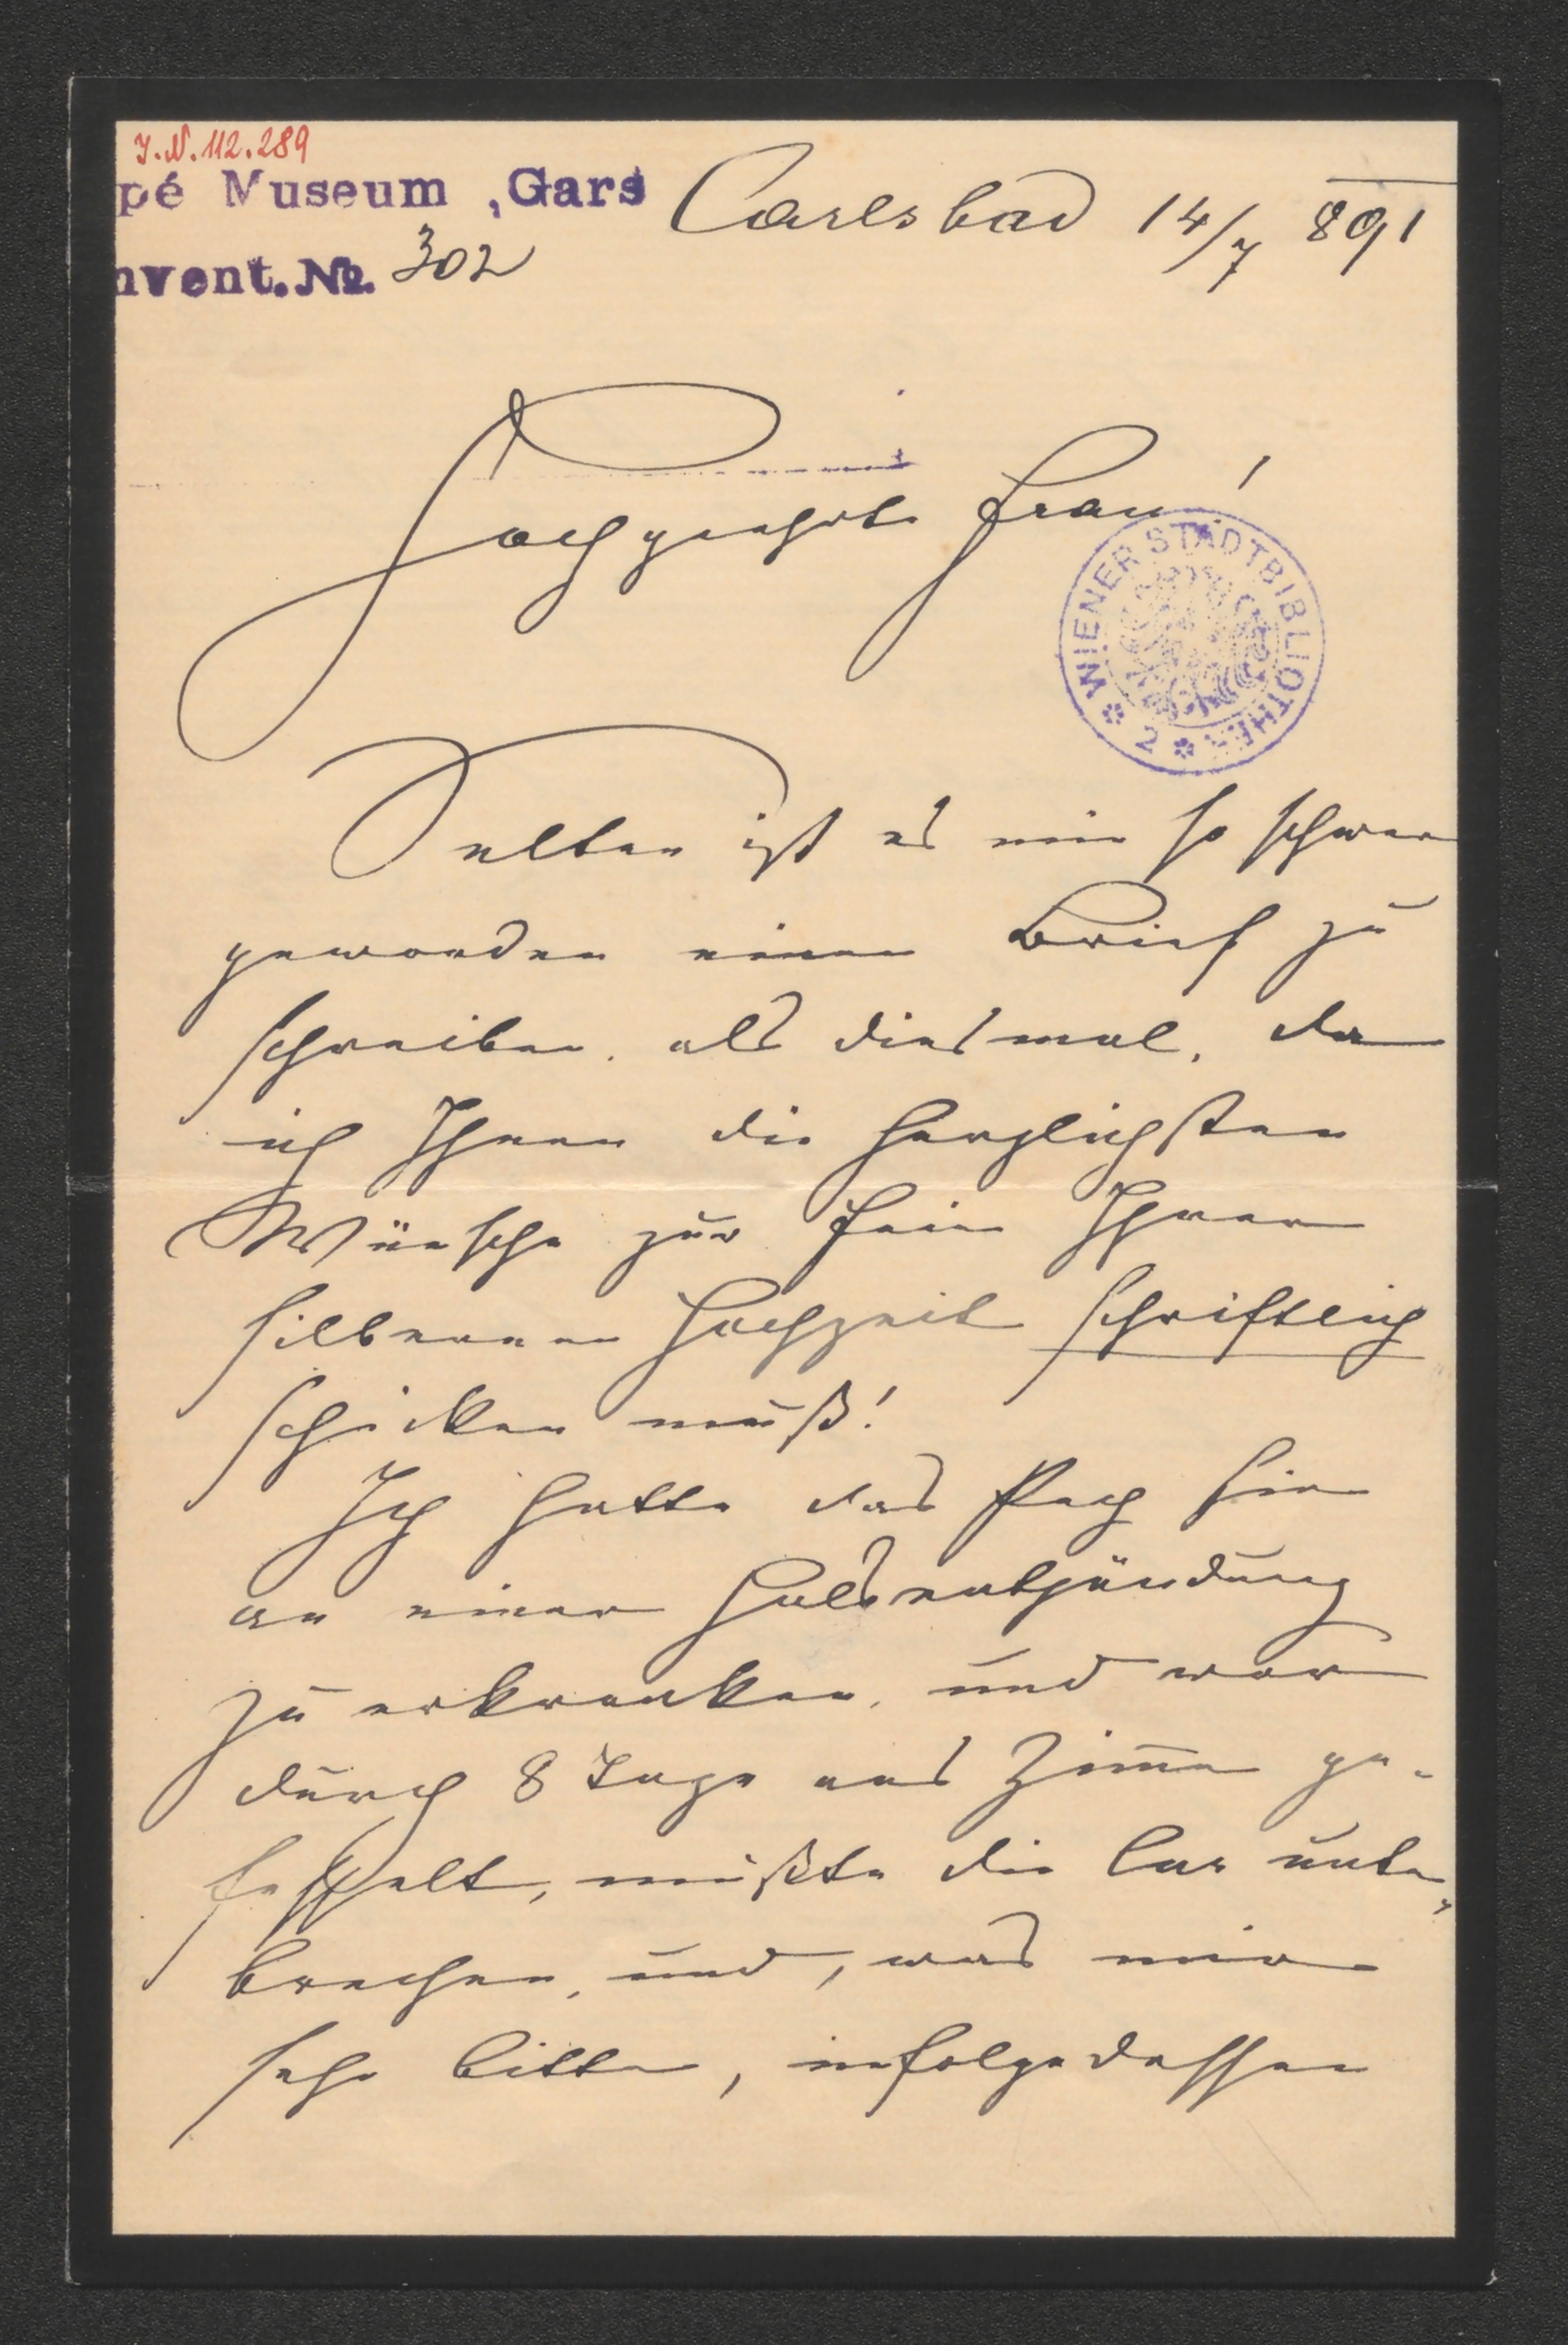 J.N. 112.289
pé Museum, Gars
nvent. No. 302
Carlsbad 14/7 891
Hochgeehrte Frau!
WIENER STADTBIBLIOTHEK 2
Selten ist es mir so schwer
geworden einen Brief zu
schreiben. als diesmal, da
ich Ihnen die herzlichsten
Wünsche zur Feier Ihrer
silbernen Hochzeit schriftlich
schicken muß!
Ich hatte das Pech hier
an einer Halsentzündung
zu erkranken, und war
durch 8 Tage ans Zim̅er ge-
fesselt, mußte die Cur unter-
brechen, und, was mir
sehr bitter, infolgedessen